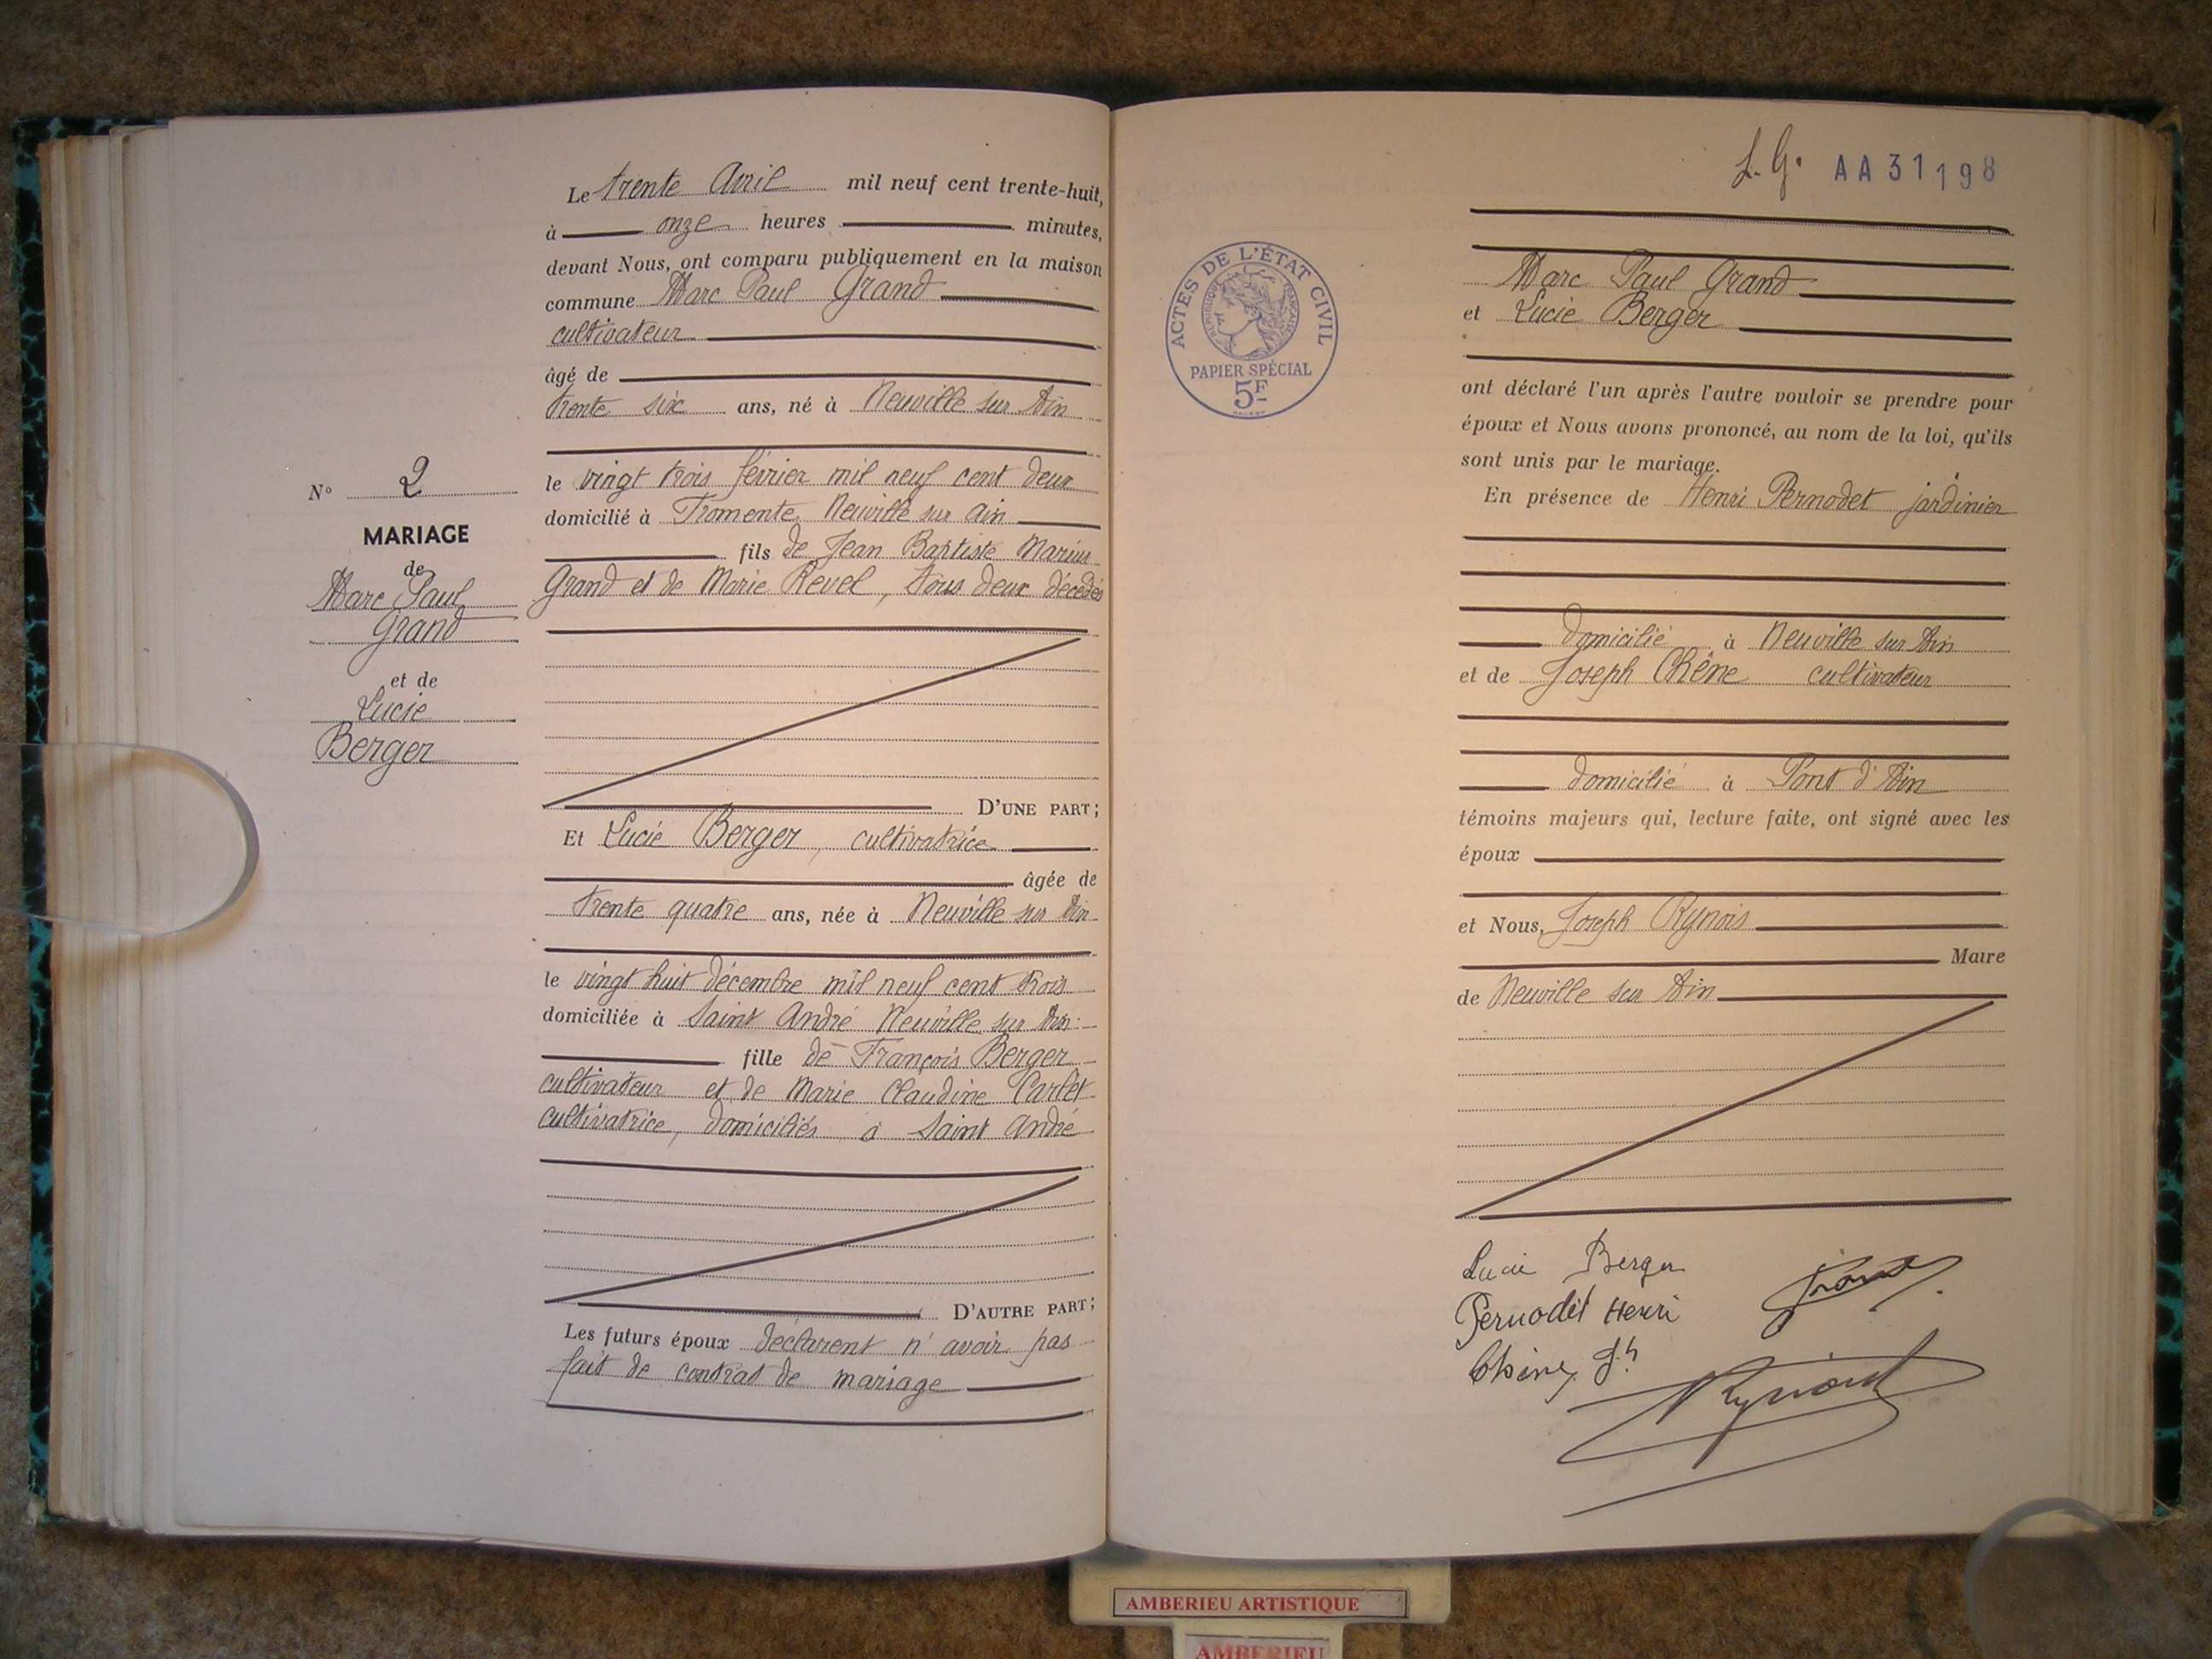 Le trente Avril mil neuf cent trente-huit,
à onze heures minutes,
devant Nous, ont comparu publiquement en la maison
commune Marc Paul Grand
cultivateur
âgé de
trente six ans, né à Neuville sur Ain
le vingt trois février mil neuf cent deux
domicilié à Fromente Neuville sur Ain
fils de Jean Baptiste Marius
Grand et de Marie Revel, tous deux décédés
D'UNE PART;
Et Lucie Berger, cultivatrice
âgée de
trente quatre ans, née à Neuville sur Ain
le vingt huit décembre mil neuf cent trois
domiciliée à Saint André Neuville sur Ain
fille de François Berger
cultivateur et de Marie Claudine Carlet
cultivatrice, domiciliés à Saint André
D'AUTRE PART;
Les futurs époux déclarent n'avoir pas
fait de contrat de mariage
N° 2
MARIAGE
de
Marc Paul
Grand
et de
Lucie
Berger
AA31198
ACTES DE L'ÉTAT CIVIL
RÉPUBLIQUE FRANÇAISE
PAPIER SPÉCIAL
5F
Marc Paul Grand
et Lucie Berger
ont déclaré l'un après l'autre vouloir se prendre pour
époux et Nous avons prononcé, au nom de la loi, qu'ils
sont unis par le mariage.
En présence de Henri Pernodet jardinier
domicilié à Neuville sur Ain
et de Joseph Chêne cultivateur
domicilié à Pont d'Ain
témoins majeurs qui, lecture faite, ont signé avec les
époux
et Nous, Joseph
Maire
de Neuville sur Ain
Lucie Berger
Grand
Pernodet Henri
Chêne Jh
AMBERIEU ARTISTIQUE
AMBERIEU